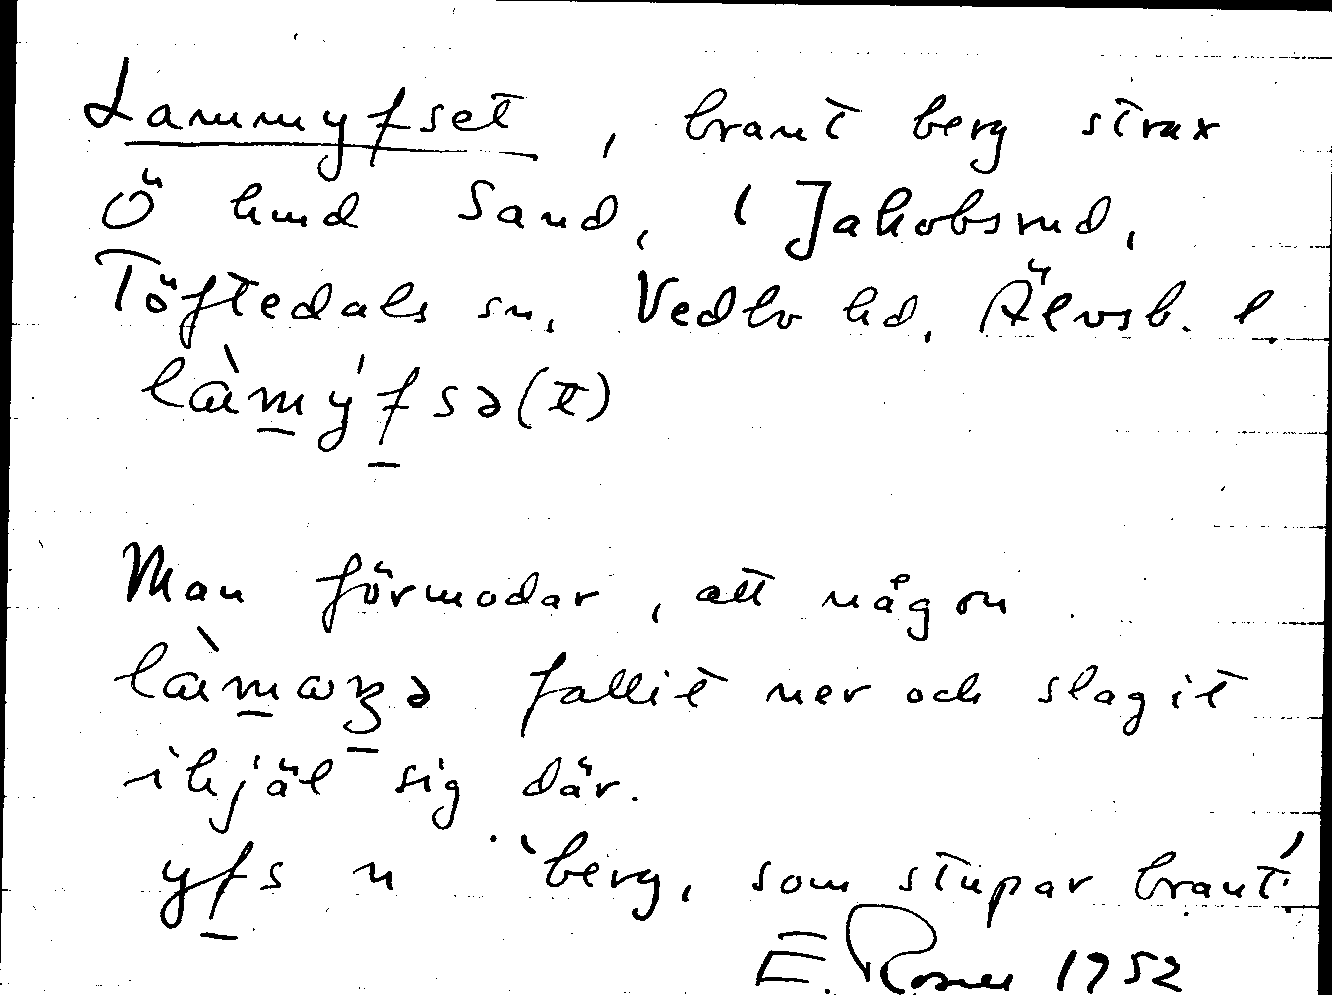 Lammyfset, brant berg strax
Ö hmd Sand, i Jakobsrud,
Töftedals sn, Vedbo hd, Älvsb. l.
làmýfsə(t)
Man förmodar, att någon
làmaʒə fallit ner och slagit
ihjäl sig där.
yfs n 'berg, som stupar brant'.
E. Rosell 1952